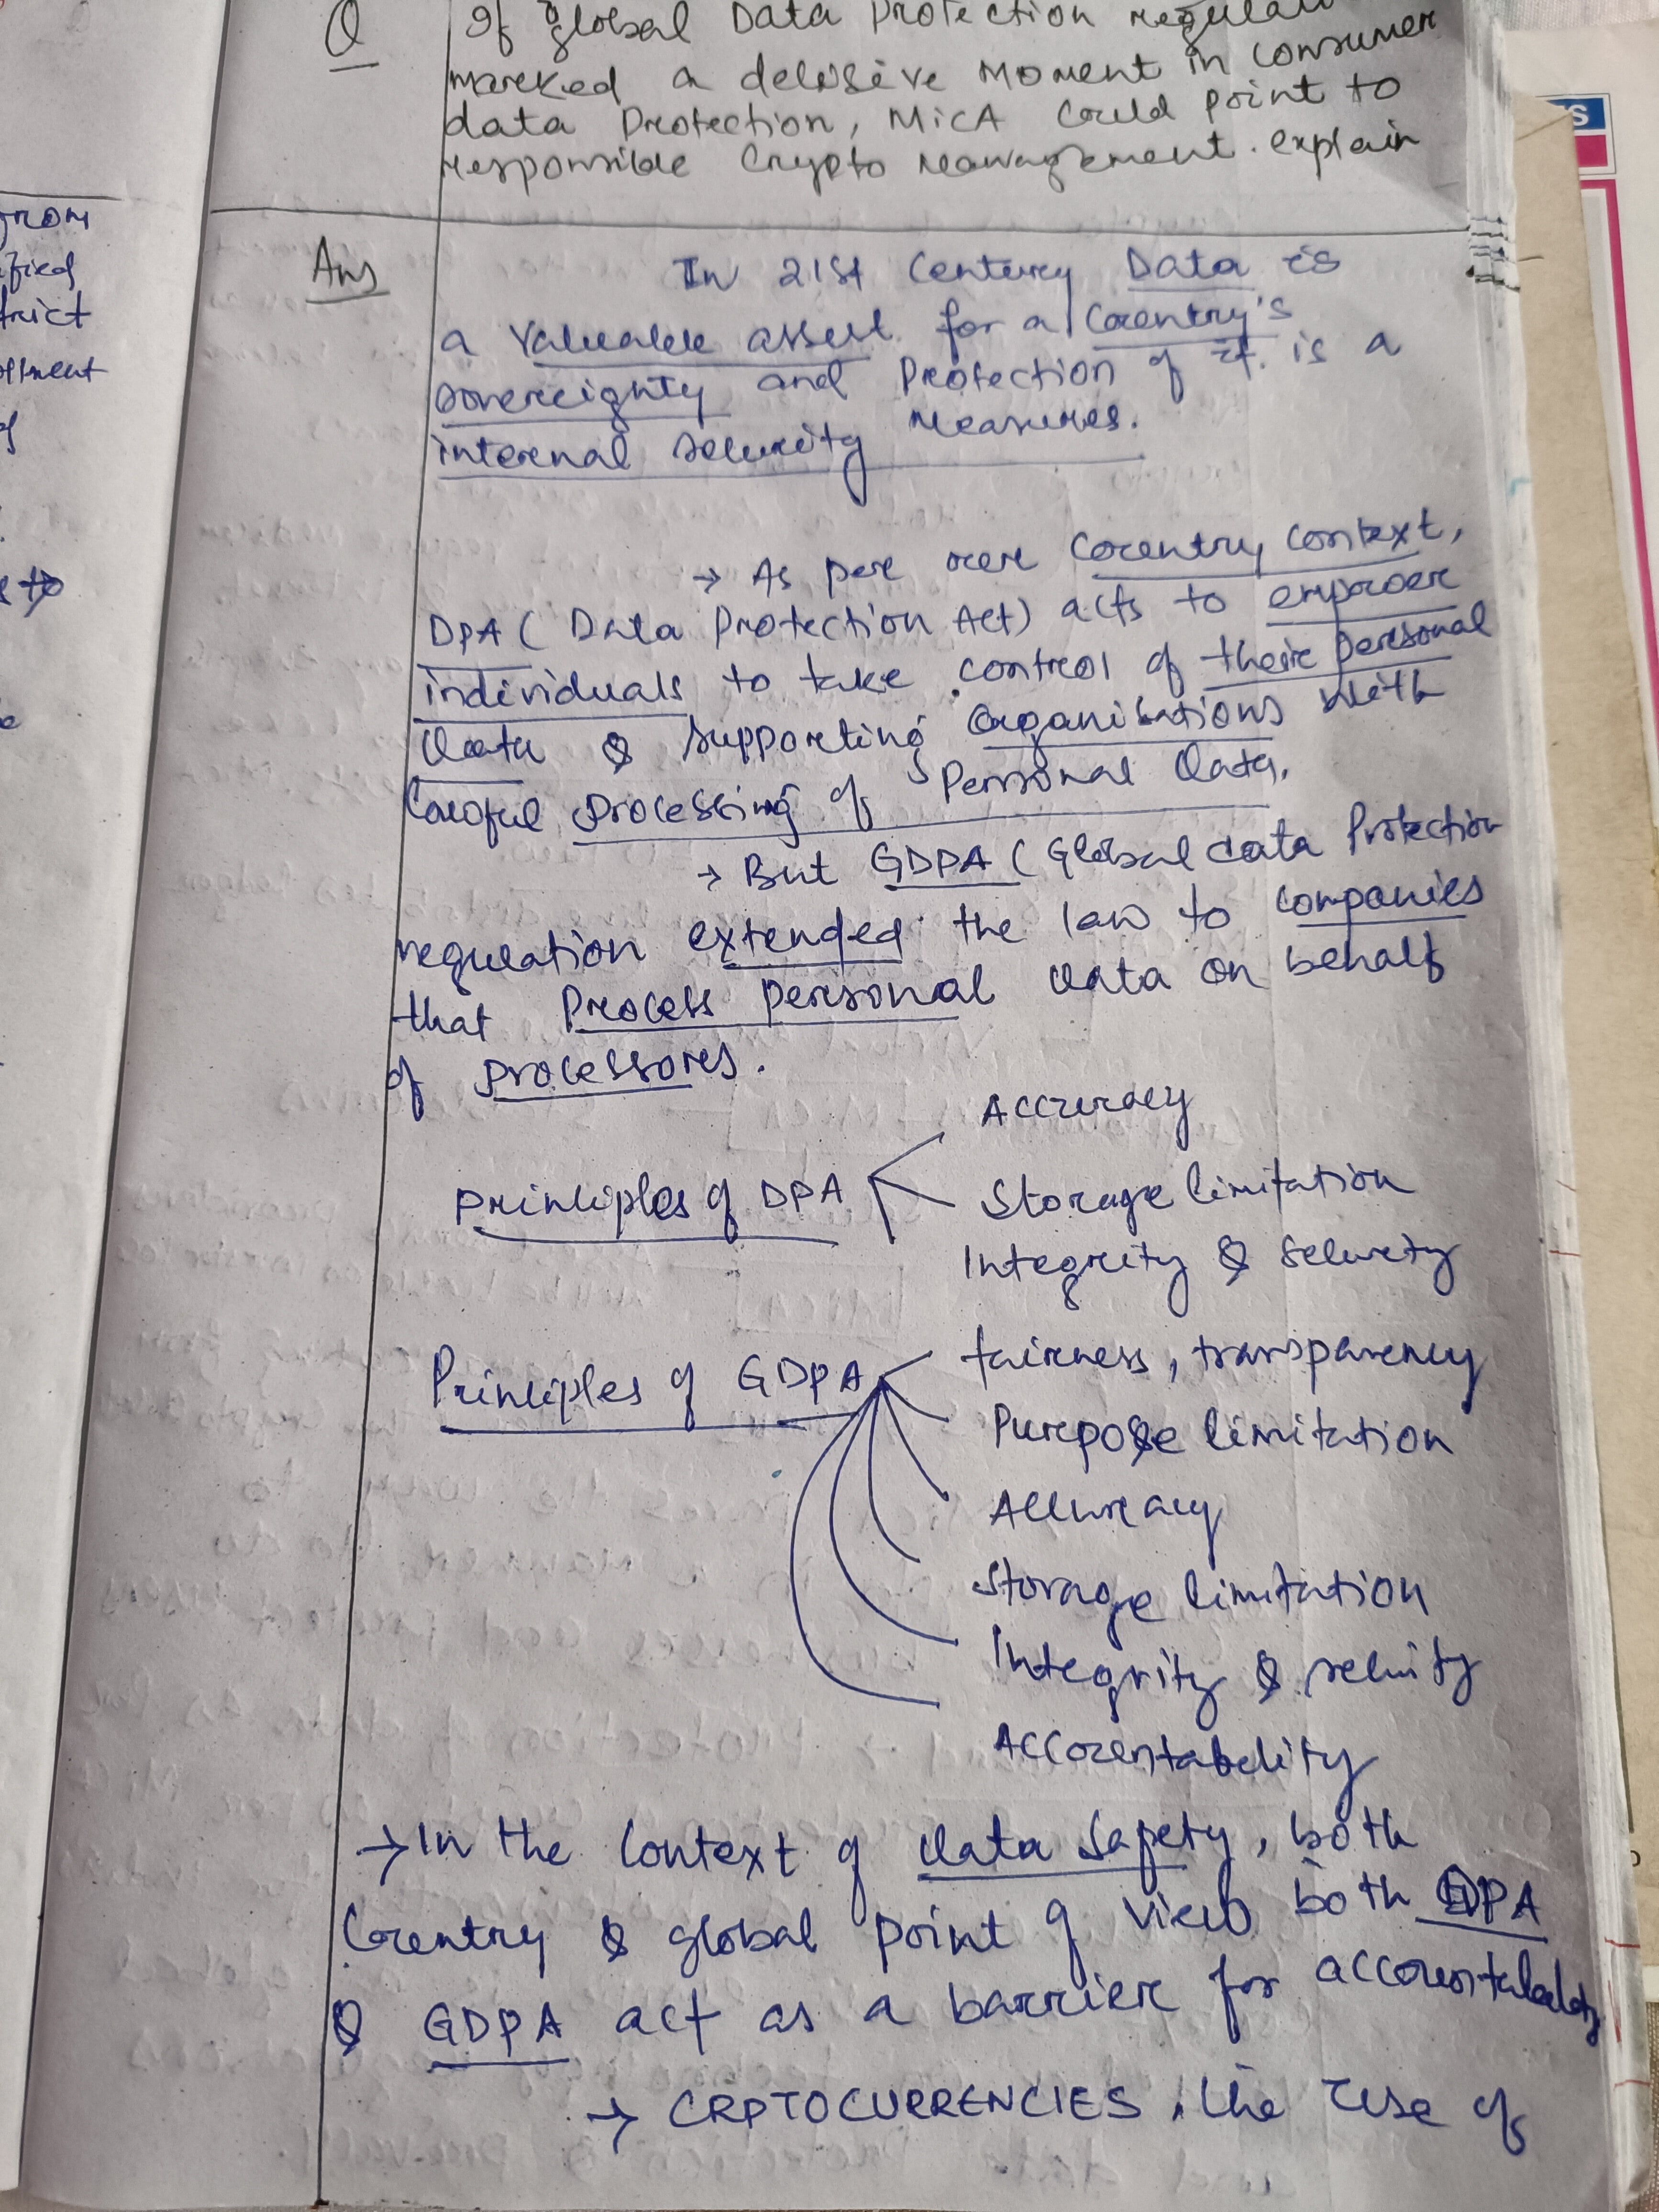 Q
If global Data Protection
marked a decisive moment in consumer
data Protection, MicA could point to
responsible Crypto management. explain
from
rict
Ans
In 21st Century Data is
a valuable asset for a Country's
sovereignty and Protection of it is a
internal security measures.
→ As per our Country context,
DPA ( Data Protection Act) acts to empower
individuals to take control of their personal
data & supporting organisations with
lawful processing of Personal data.
→ But GDPA ( Global data Protection
regulation extended the law to companies
that Process personal data on behalf
of processors.
Principles of DPA
Accuracy
Storage limitation
Integrity & security
Principles of GDPA
fairness, transparency
Purpose limitation
Accuracy
Storage limitation
Integrity & security
Accountability
→ In the context of data safety, both
Country & global point of view both DPA
& GDPA act as a barrier for accountability
→ CRPTOCURRENCIES, the use of